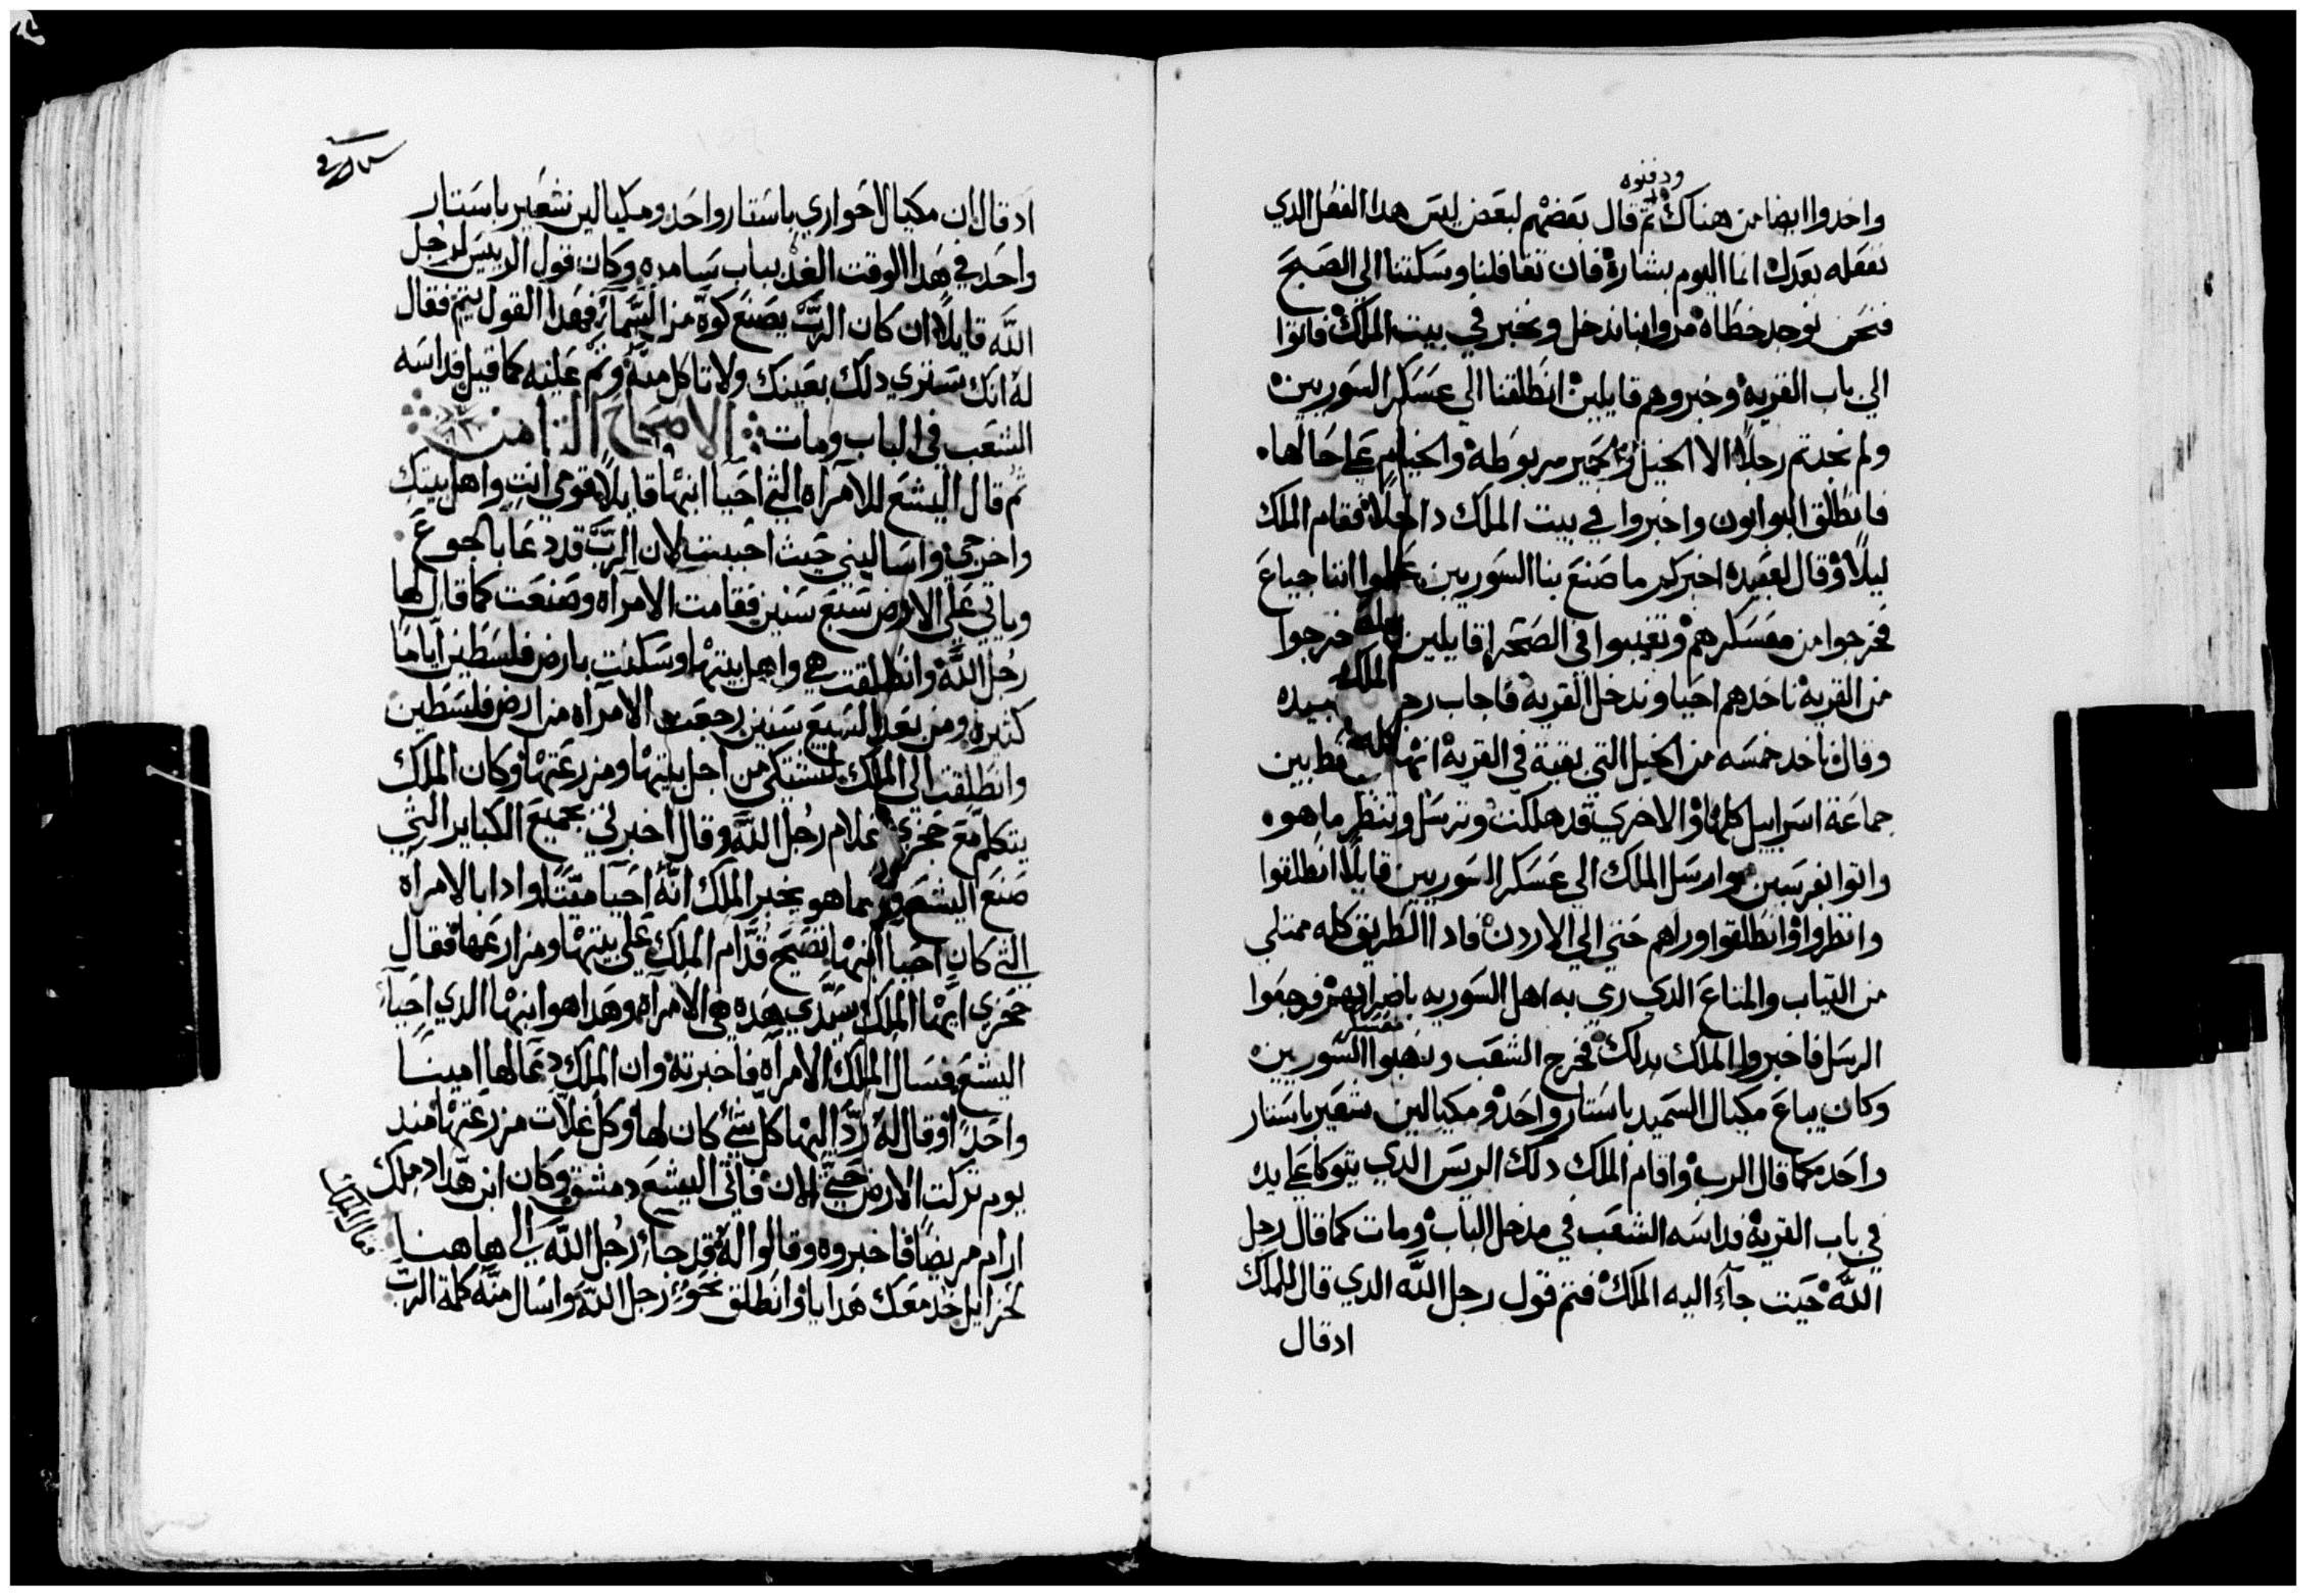 ودفنوه
واخدوا ايضا من هناك ثم قال بعضهم لبعض ليس هدا الفعل الدي
نفعله بعدل انما اليوم بشارة فان تغافلنا وسكتنا الي الصبح
فنحن نوجد خطاه مروا بنا ندخل ونخبر في بيت الملك فاتوا
الي باب القريه وخبروهم قايلين انطلقنا الي عسكر السوريين
ولم نجد ثم رجلاً الا الخيل والحمير مربوطه والخيام علي حالها
فانطلق البوابون واخبروا في بيت الملك داخلاً فقام الملك
ليلاً وقال لعبيده اخبركم ما صنع بنا السوريين علموا اننا جياع
فخرجوا من معسكرهم وتغيبوا في الصحرا قايلين خرجوا
من القرية ناخدهم احيا وندخل القرية فاجاب رجل الملك عبيده
وقال ناخد خمسه من الخيل التي بقية في القرية انها فقط بين
جماعة اسراييل كلها والاخري قد هلكت ونرسل وننظر ما هو
واتوا بفرسين وارسل الملك الي عسكر السوريين قايلاً انطلقوا
وانظروا وانطلقوا وراهم حتي الي الاردن فادا الطريق كله ممتلي
من التياب والمتاع الدي رمي به اهل السوريه باضطرابهم فرجعوا
الرسل فاخبروا الملك بدلك فخرج الشعب ونهبوا معسكر السوريين
وكان يباع مكيال السميد باستار واحد ومكيالين شعير باستار
واحد كما قال الرب واقام الملك دلك الريس الدي يتوكا علي يده
في باب القرية فداسه الشعب في مدخل الباب ومات كما قال رجل
الله حيت جآء اليه الملك فتم قول رجل الله الدي قال للملك
اد قال
اد قال ان مكيال لاحواري باستار واحد ومكيالين شعير باستار
واحد في هدا الوقت الغد بباب سامره وكان قول الرييس لرجل
الله قايلاً ان كان الرب يصنع كوه من السمآء فهدا القول يتم فقال
له انك ستري دلك بعينك ولا تاكل منه وتم عليه كما قيل فداسه
الشعب في الباب ومات الاصحاح الثامن
ثم قال اليشع للامرآه التي احيا ابنها قايلاً قومي انتِ واهل بيتكِ
واخرجي واساليني حيث احببت لان الرب قد دعا بالجوع
وياتي علي الارض سبع سنين فقامت الامرآه وصنعت كما قال لها
رجل الله وانطلقت هي واهل بيتها وسكنت بارض فلسطين اياما
كثيره ومن بعد السبع سنين رجعت الامرآه من ارض فلسطين
وانطلقت الي الملك لتشتكي من اجل بيتها ومزرعتها وكان الملك
يتكلم مع جحزي غلام رجل الله وقال اخبرني بجميع الكباير التي
صنع اليشع وبينما هو يخبر الملك انه احيا ميتا وادا بالامرآه
التي كان احيا ابنها تصيح قدام الملك علي بيتها ومزارعها فقال
جحزي ايها الملك سيدي هده هي الامرآه وهدا هو ابنها الدي احيآه
اليشع فسال الملك الامرآه فاخبرته وان الملك دعا لها امينا
واحداً وقال له رد اليها كل شي كان لها وكل غلات مزرعتها مند
يوم تركت الارض حتي الان فاتي اليشع دمشق وكان ابن هداد ملك
ارام مريضاً فاخبروه وقالوا له قد جآء رجل الله الي هاهنا
فقال الملك
لحزاييل خد معك هدايا وانطلق نحو رجل الله واسال منه كلمة الرب